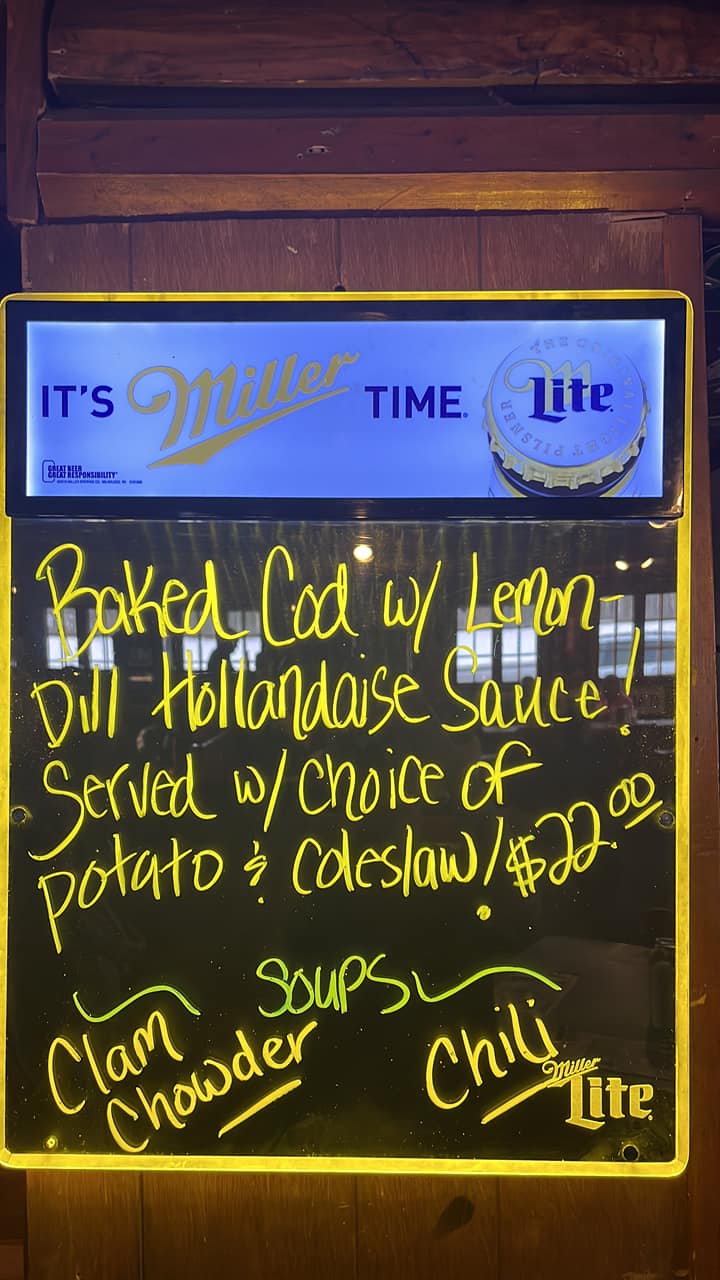 IT'S Miller TIME.
THE ORIGINAL LIGHT PILSNER
Lite
GREAT BEER
GREAT RESPONSIBILITY
Baked Cod w/ Lemon-
Dill Hollandaise Sauce!
Served w/ choice of
potato & coleslaw! $22.00
Soups
Clam
Chowder
Chili
Miller
Lite